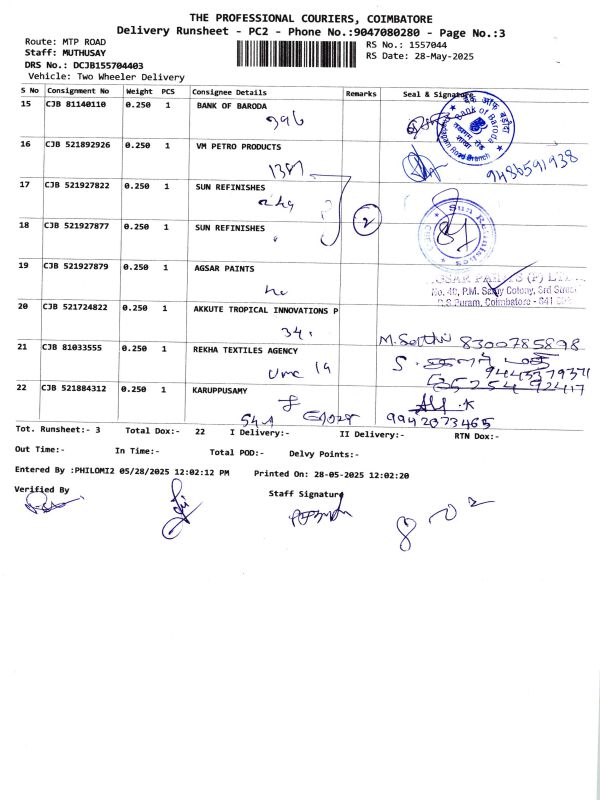 THE PROFESSIONAL COURIERS, COIMBATORE
Delivery Runsheet - PC2 - Phone No.:9047080280 - Page No.:3
Route: MTP ROAD
RS No.: 1557044
Staff: MUTHUSAY
RS Date: 28-May-2025
DRS No.: DCJB155704403
Vehicle: Two Wheeler Delivery
S No Consignment No Weight PCS Consignee Details Remarks Seal & Signature
15 CJB 81140110 0.250 1 BANK OF BARODA
Bank of Baroda
Road Branch
16 CJB 521892926 0.250 1 VM PETRO PRODUCTS
9486591938
17 CJB 521927822 0.250 1 SUN REFINISHES
2
18 CJB 521927877 0.250 1 SUN REFINISHES
Sun Refinishes
19 CJB 521927879 0.250 1 AGSAR PAINTS
No. 40, P.M. Samy Colony, 3rd Street
R.S.Puram, Coimbatore - 641
20 CJB 521724822 0.250 1 AKKUTE TROPICAL INNOVATIONS P
34
8300785898
21 CJB 81033555 0.250 1 REKHA TEXTILES AGENCY
22 CJB 521884312 0.250 1 KARUPPUSAMY
9942073465
Tot. Runsheet:- 3 Total Dox:- 22 I Delivery:- II Delivery:- RTN Dox:-
Out Time:- In Time:- Total POD:- Delvy Points:-
Entered By :PHILOMI2 05/28/2025 12:02:12 PM Printed On: 28-05-2025 12:02:20
Verified By
Staff Signature